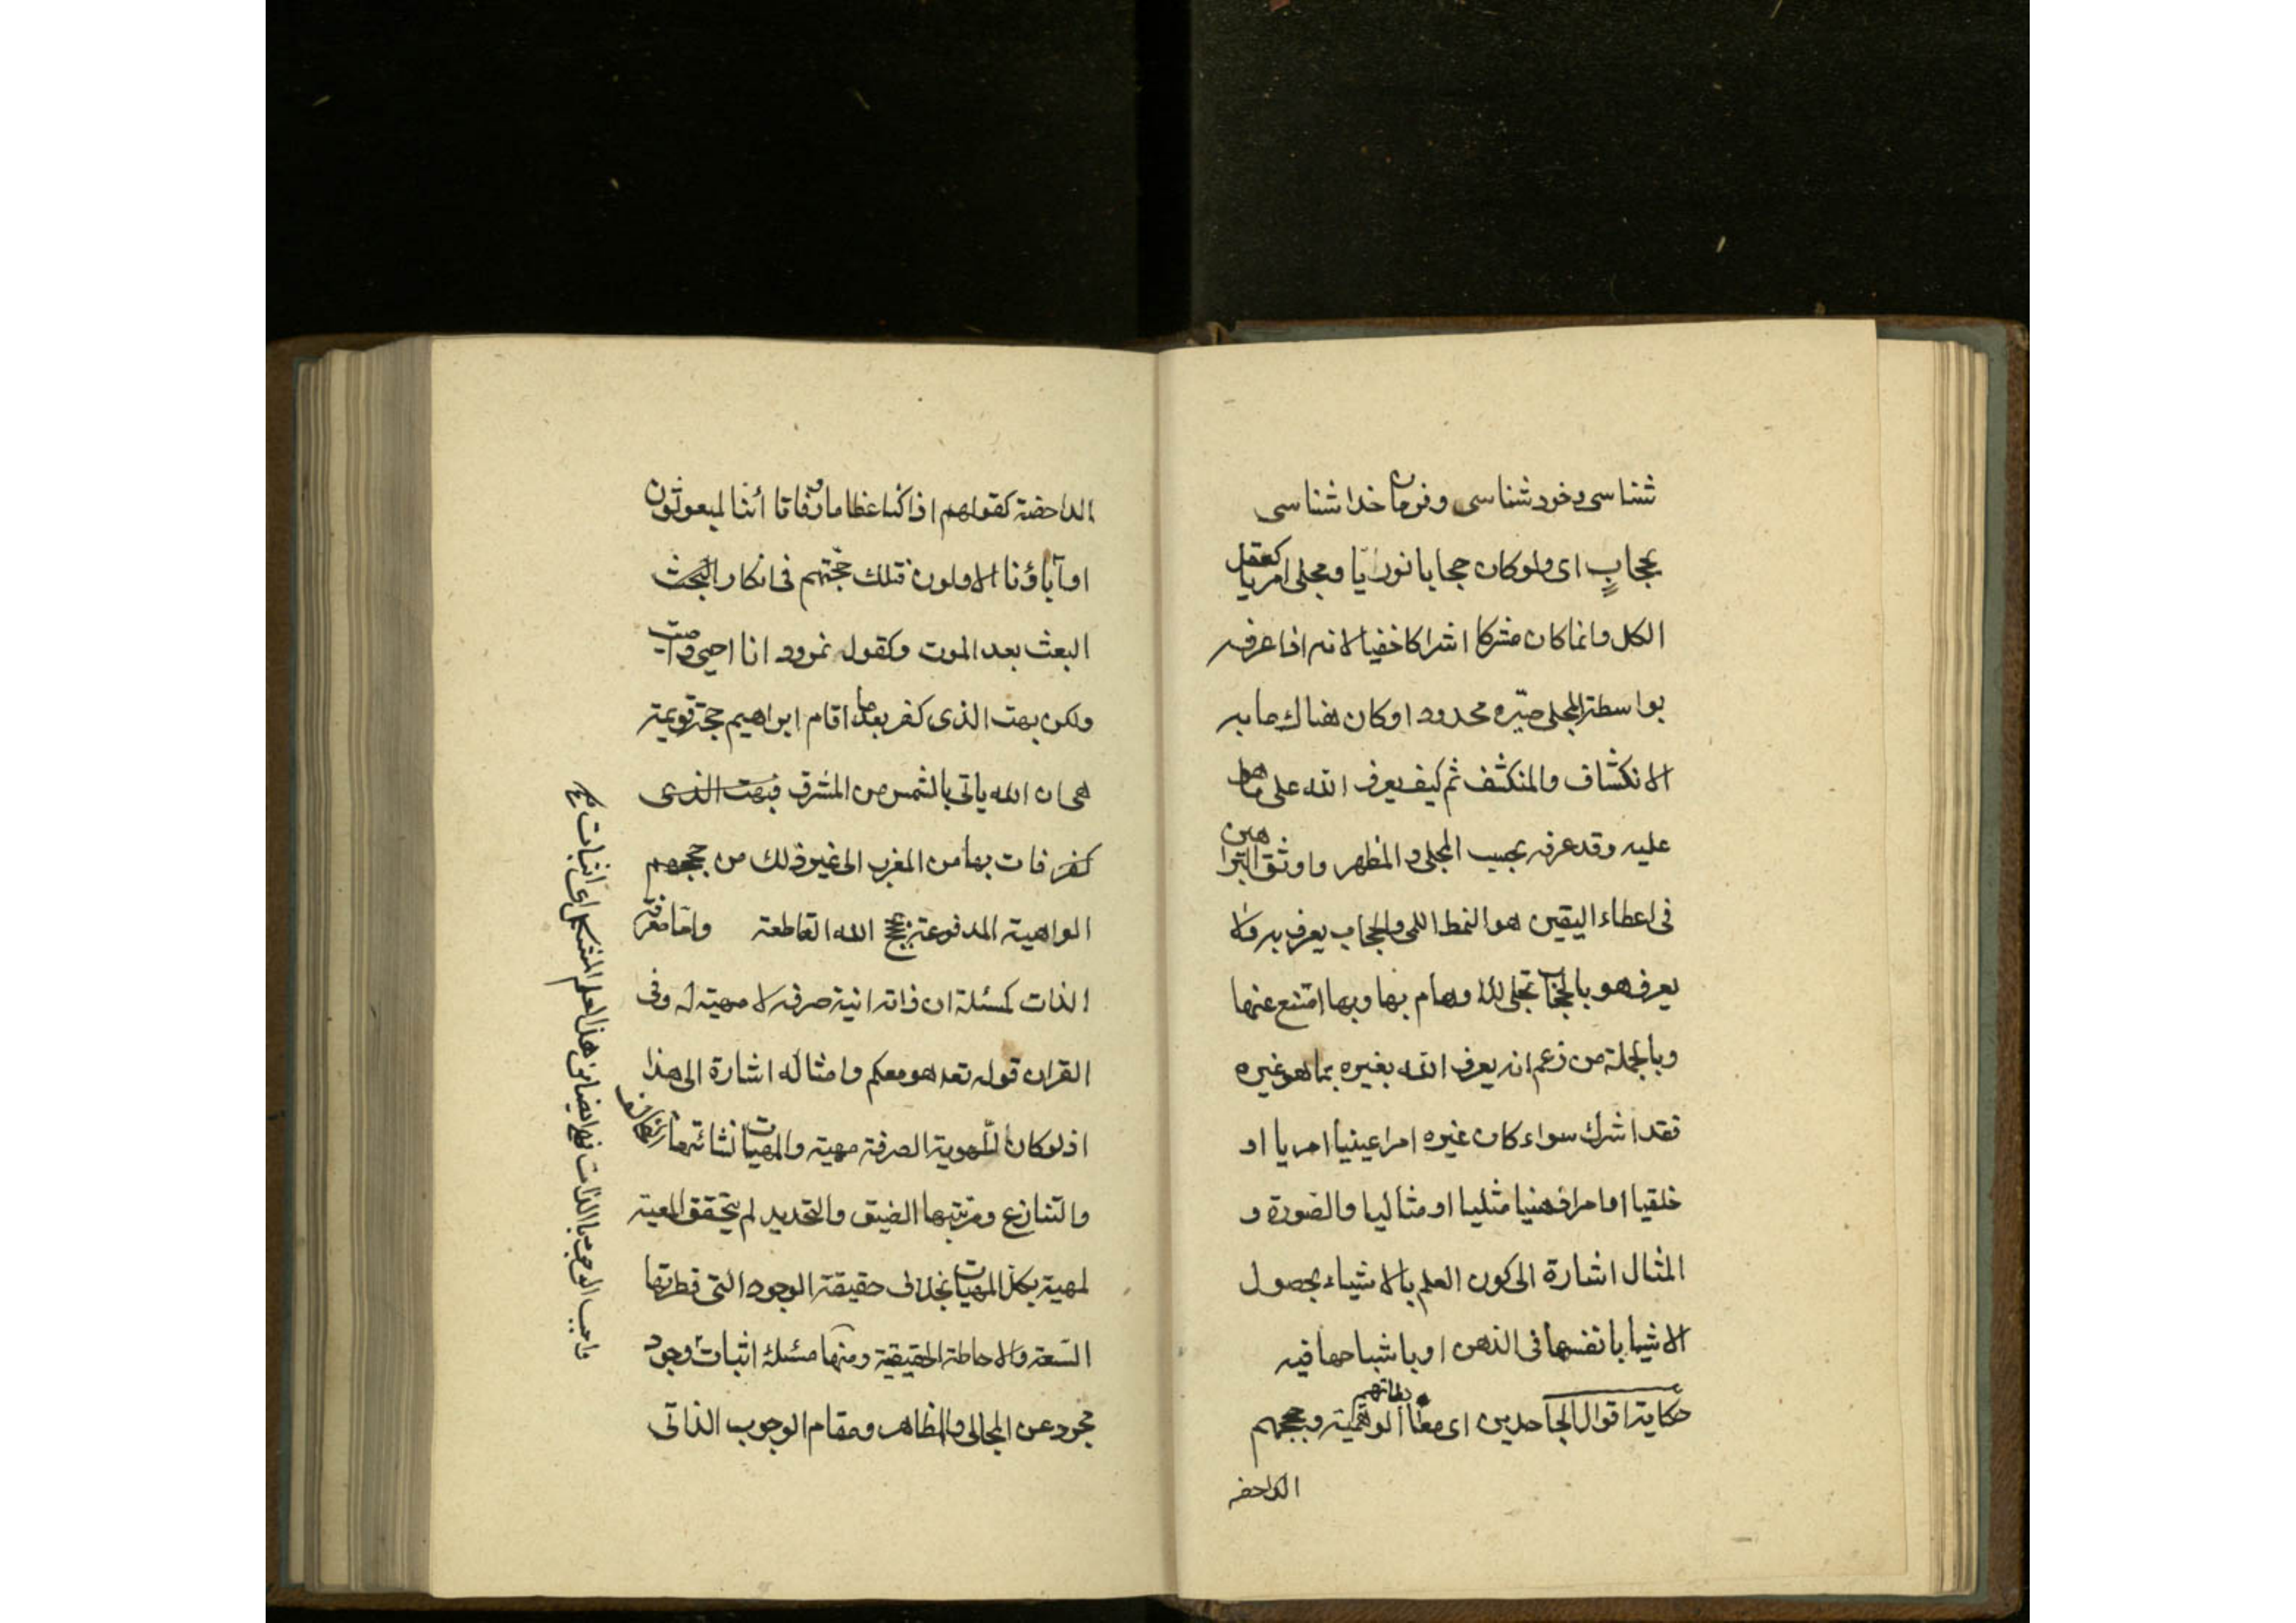 شناسی وخود شناسی وفرمان خدا شناسی
بحجابٍ ای ولوکان حجابا نوریّا ومجلی امریا کعقل
الکل وانماکان مشرکا اشراکا خفیا لانه اذا عرفه
بواسطة المجلی میّزه محدود اوکان هناك مابه
الانکشاف والمنکشف ثم کیف یعرف الله علی ماهو
علیه وقد عرفه بحسب المجلی والمظهر واوثق البراهین
فی اعطاء الیقین هو النمط اللمی والحجاب یعرف به ولا
یعرف هو بالحجاب تجلی لها وبها امتنع عنها
وبالجملة من زعم انه یعرف الله بغیره بماهو غیره
فقد اشرك سواء کان غیره امرا عینیا امریا او
خلقیا اوامرا ذهنیا مثلیا او مثالیا والصورة و
المثال اشارة الی کون العلم بالاشیاء بحصول
الاشیا بانفسها فی الذهن اوباشباحها فیه
حکایة اقوال الجاحدین ای مغالطاتهم الوهمیة وبحججهم
الداحضه
الداحضة کقولهم اذاکنا عظاما ورفاتا أئنا لمبعوثون
اوآباؤنا الاولون فتلك حجّتهم فی انکار البحث
البعث بعد الموت وکقول نمرود انا احیی وامیت
ولکن بهت الذی کفر بعدما اقام ابراهیم حجة قویمة
هی ان الله یاتی بالشمس من المشرق فبهت الذی
کفر فات بها من المغرب الی غیر ذلك من حججهم
الواهیة المدفوعة بحجج الله القاطعة وامّا معرفة
الذات کمسئلة ان ذاته انیة صرفه لا مهیة له وفی
القران قوله تعه هو معکم وامثاله اشارة الی هذا
اذلوکان للهویة الصرفة مهیة والمهیات نشائتها التخالف
والتنازع ومرتبتها الضیق والتحدید لم یتحقق المعیة
لمهیة بکل المهیات بخلاف حقیقة الوجود التی فطرتها
السّعة والاحاطة الحقیقیة ومنها مسئلة اثبات وجود
مجرد عن المجالی والمظاهر ومقام الوجوب الذاتی
واجب الوجود بالذات ایضا من هذا العلم المتکفل اثبات